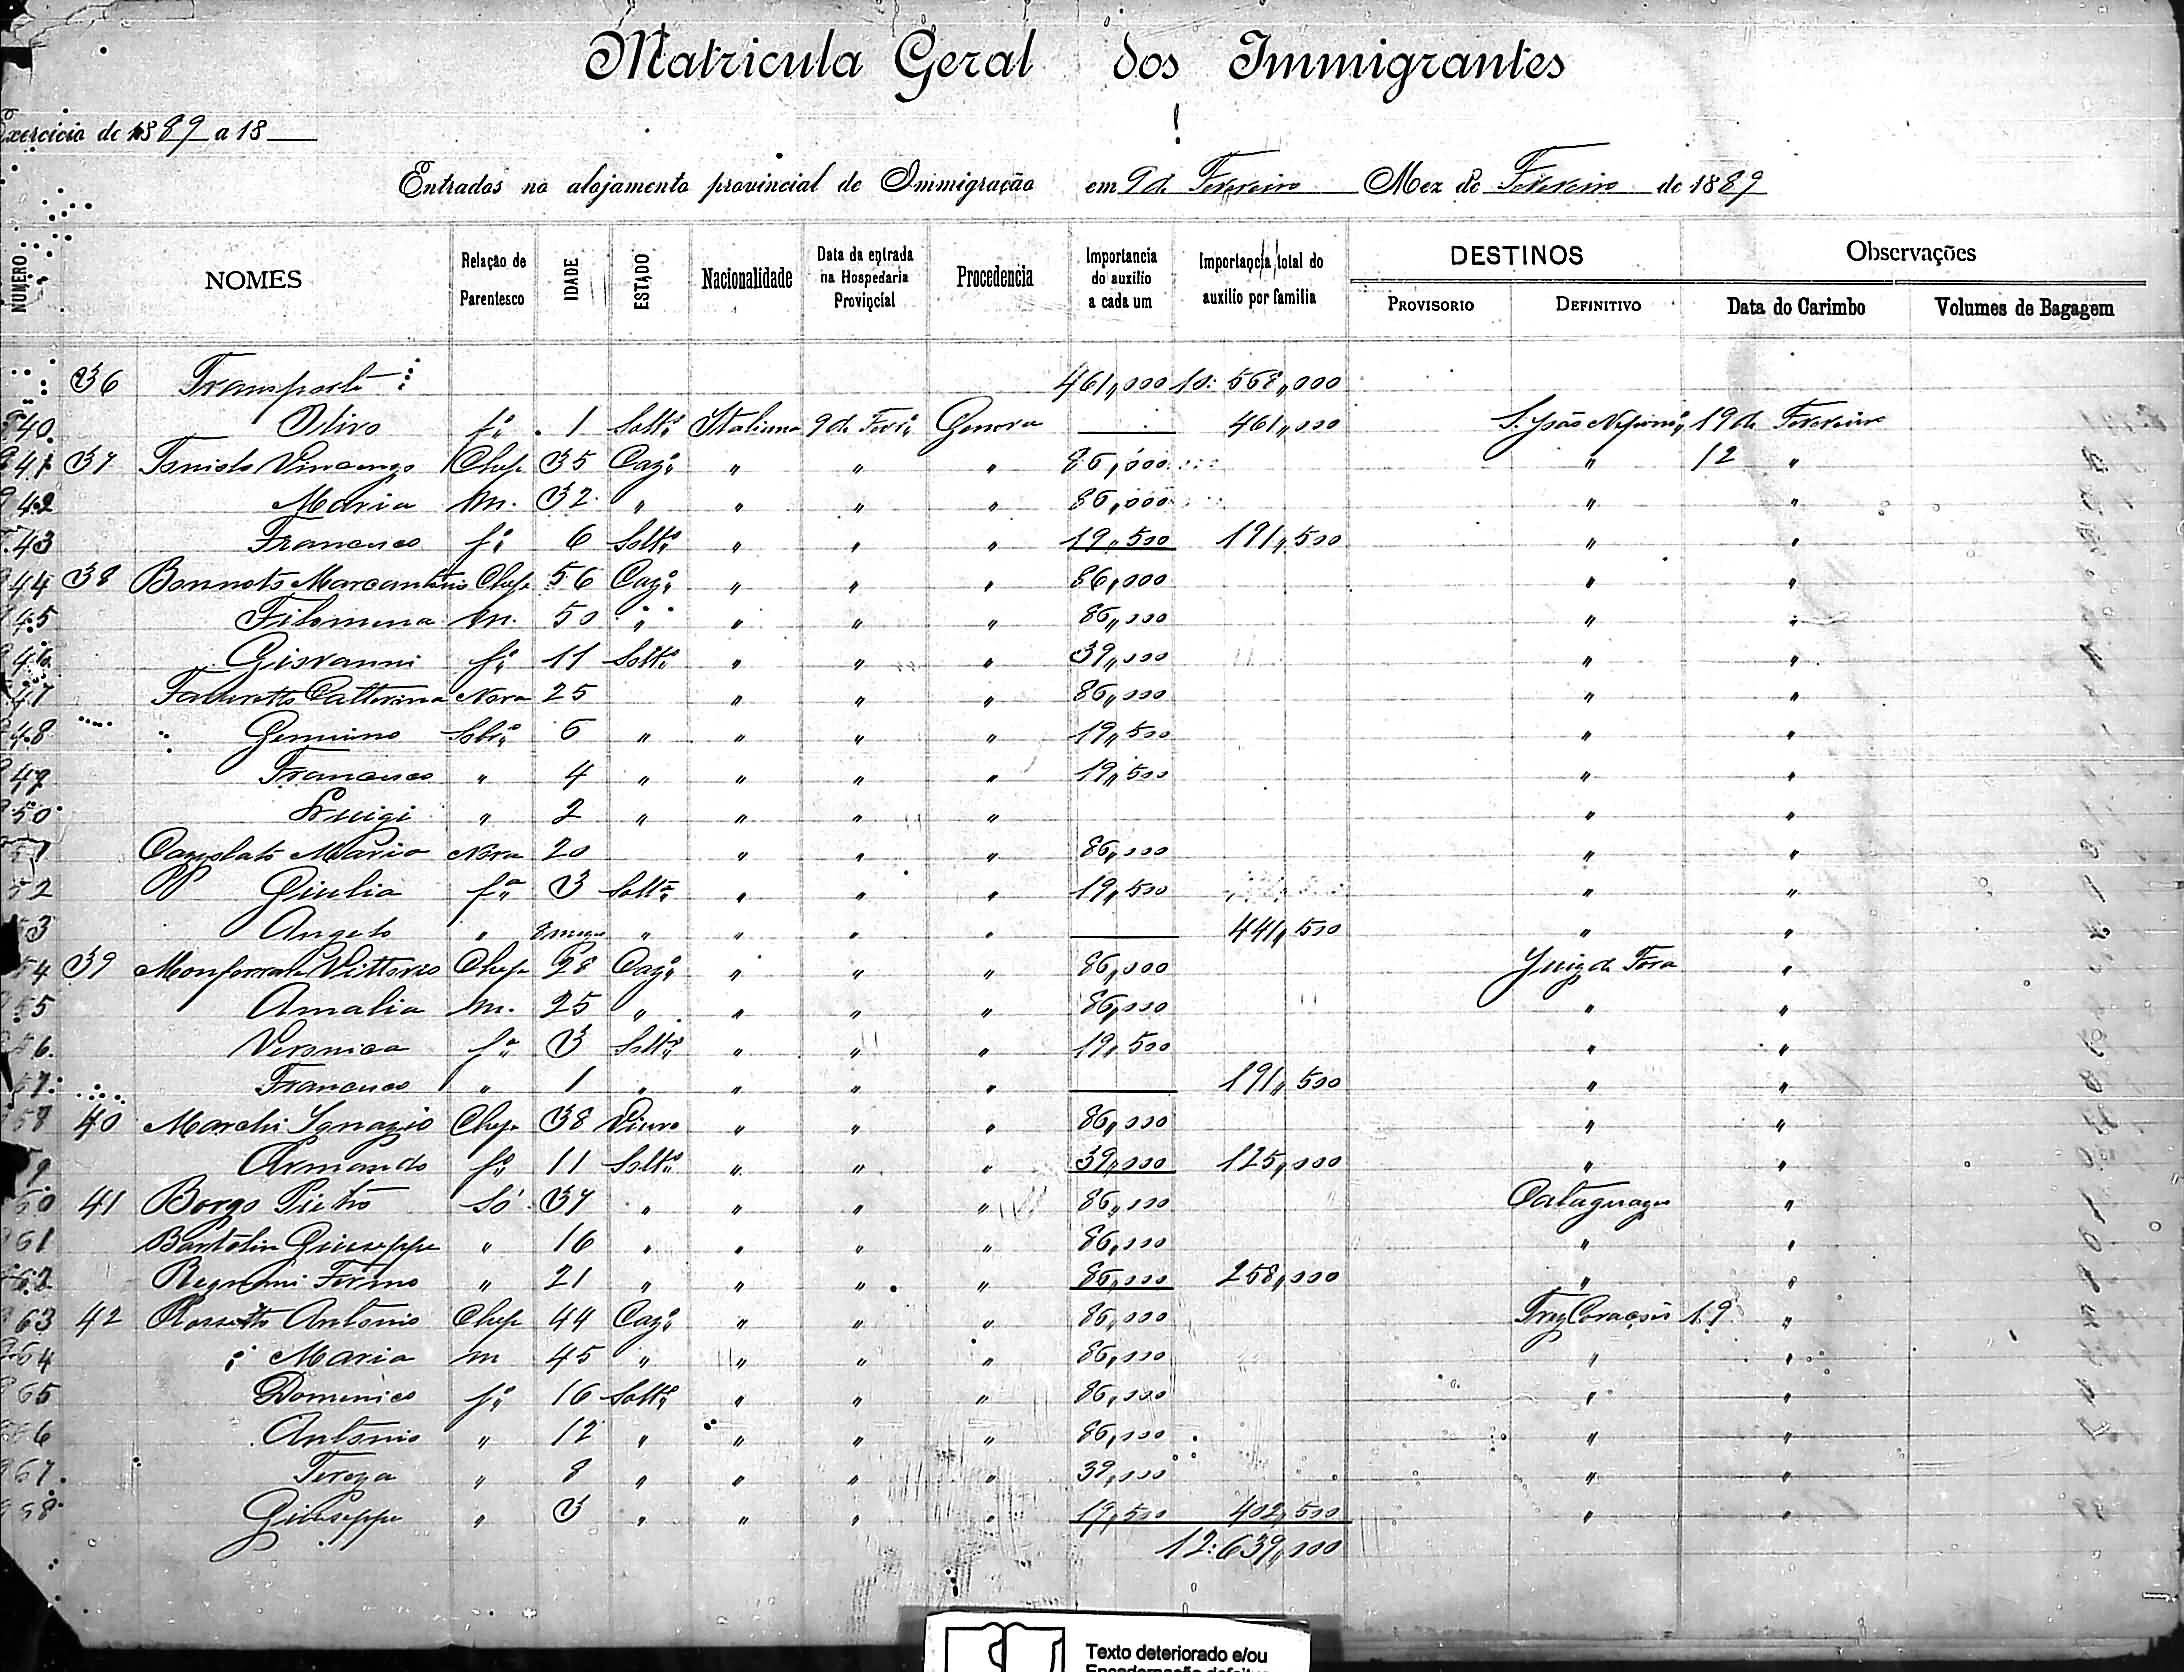 Matricula Geral dos Immigrantes
Exercicio de 1889 a 18
Entrados no alojamento provincial de Immigração em 9 de Fevereiro Mez de Fevereiro de 1889
NUMERO NOMES Relação de Parentesco IDADE ESTADO Nacionalidade Data da entrada na Hospedaria Provincial Procedencia Importancia do auxilio a cada um Importancia total do auxilio por familia DESTINOS PROVISORIO DEFINITIVO Observações Data do Carimbo Volumes de Bagagem
36 Transporte 461,,000 10:568,,000
40 Olivo fo 1 Solto Italiana 9 de Fevo Genova — 461,,000 S. João Nepomo 19 de Fevereiro
41 37 Vincenzo Chefe 35 Cazo " " " 86,000 " 12 "
42 Maria M. 32 " " " " 86,000 " "
43 Francesco fo 6 Solto " " " 19,,500 191,,500 " "
44 38 Marcantonio Chefe 56 Cazo " " " 86,000 " "
45 Filomena M. 50 " " " " 86,,000 " "
46 Giovanni fo 11 Solto " " " 39,,000 " "
47 Catterina Nora 25 " " " 86,,000 " "
48 Genuino Sobo 6 " " " " 19,,500 " "
49 Francesco " 4 " " " " 19,,500 " "
50 Luigi " 2 " " " " " "
51 Maria Nora 20 " " " 86,,000 " "
52 Giulia fa 3 Solta " " " 19,,500 " "
53 Angelo " 8 mezes " " " " — 441,,500 " "
54 39 Vittorio Chefe 28 Cazo " " " 86,000 Juiz de Fora "
55 Amalia M. 25 " " " " 86,000 " "
56 Veronica fa 3 Solta " " " 19,,500 " "
57 Francesco " 1 " " " " — 191,,500 " "
58 40 Marchi Ignazio Chefe 38 Viuvo " " " 86,000 " "
59 Armando fo 11 Solto " " " 39,,000 125,000 " "
60 41 Borgo Pietro Só 37 " " " " 86,,000 Cataguazes "
61 Bartolin Giuseppe " 16 " " " " 86,000 " "
62 Fermo " 21 " " " " 86,000 258,000 " "
63 42 Rossetto Antonio Chefe 44 Cazo " " " 86,000 Trez Corações 19 "
64 Maria M 45 " " " " 86,000 " "
65 Domenico fo 16 Solto " " " 86,000 " "
66 Antonio " 12 " " " " 86,000 " "
67 Tereza " 8 " " " " 39,000 " "
68 Giuseppe " 3 " " " " 19,500 402,500 " "
12:639,,000
Texto deteriorado e/ou